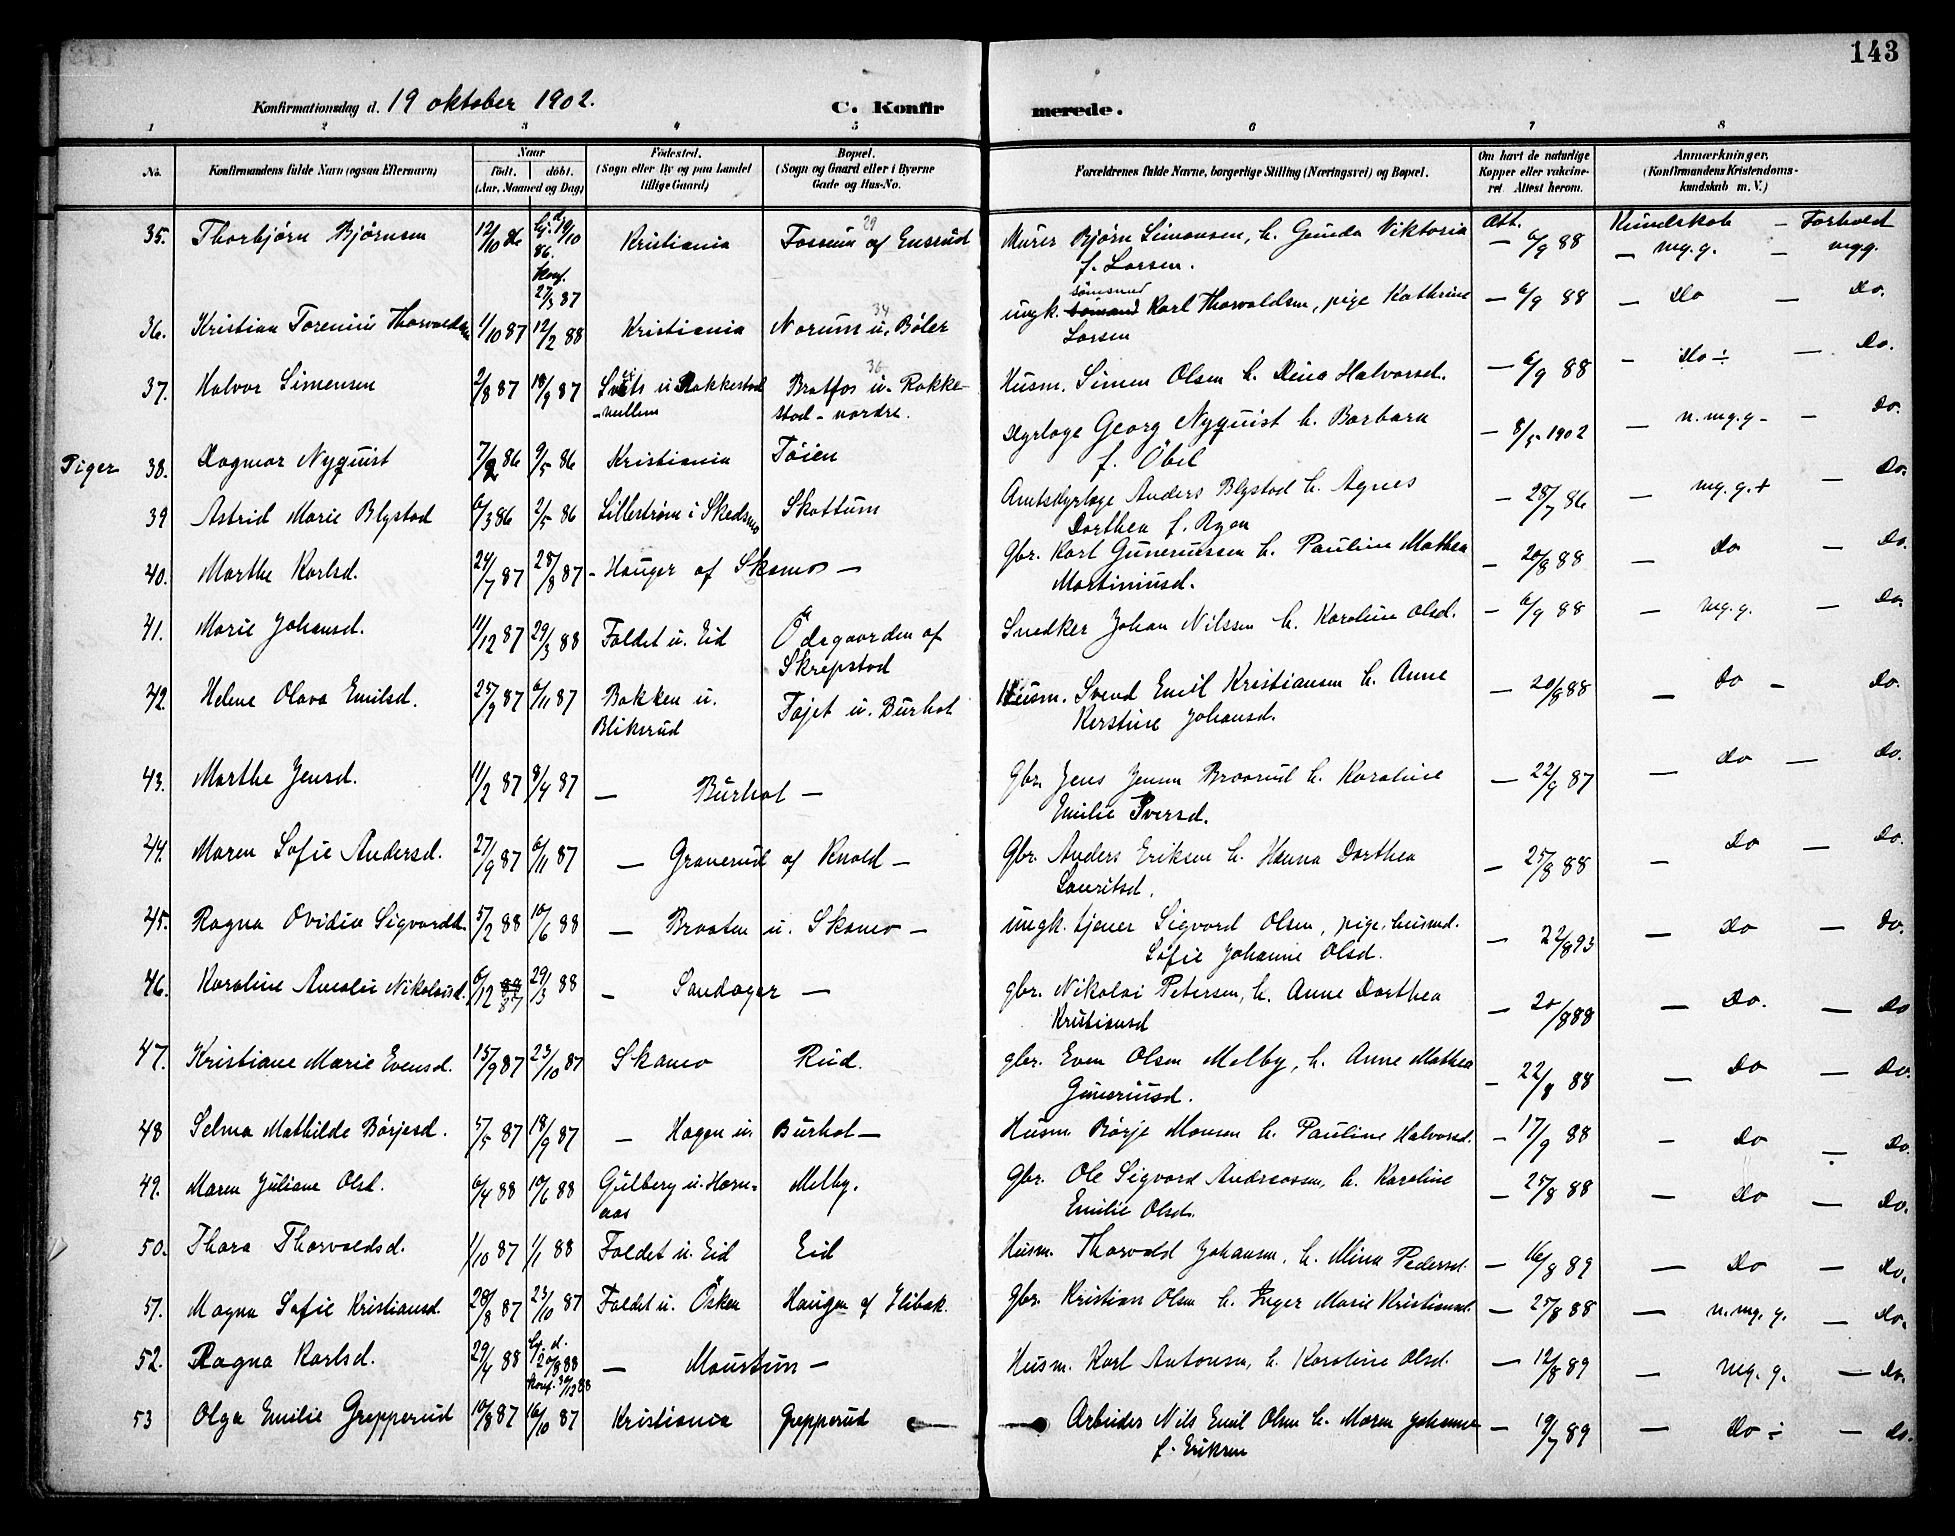 143
Konfirmationsdag d. 19 oktober 1902. C. Konfirmerede.
1 2 3 4 5 6 7 8
No. Konfirmandens fulde Navn (ogsaa Efternavn) Naar født. døbt. (Aar, Maaned og Dag) Fødested. (Sogn eller By og paa Landet tillige Gaard) Bopæl. (Sogn og Gaard eller i Byerne Gade og Hus-No. Forældrenes fulde Navne, borgerlige Stilling (Næringsvei) og Bopæl. Om havt de naturlige Kopper eller vakcineret Attest herom. Anmærkninger, (Konfirmandens Kristendomskundskab m. V.)
Att. Kundskab — Forhold
35. Thorbjørn Bjørnsen 12/10 86 hj. d. 19/10 86. konf. 27/3 87 Kristiania Fossum af Ensrud 29 Murer Bjørn Simonsen, h. Gunda Viktoria f. Larsen. — 6/9 88 — mg.g. — mgg.
36. Kristian Torenius Thorvaldsen 1/10 87 12/2 88 Kristiania Norum u. Bøler 34 ungk. sømand Karl Thorvaldsen, pige Kathrine Larsen — 6/9 88 — do — do.
37. Halvor Simensen 2/8 87 18/9 87 u Rakkestad - mellem Bratfos u. Rakkestad - nordre. 36 Husm. Simen Olsen h. Dina Halvorsd. — 6/9 88 — do ÷ — do.
Piger 38. Dagmar Nyquist 7/2 86 9/5 86 Kristiania Tøien Dyrlæge Georg Nyquist h. Barbara f. Öbel — 8/5 1902 — n.mg.g — do.
39 Astrid Marie Blystad 6/3 86 2/5 86 Lillestrøm i Skedsmo Skattum Amtsdyrlæge Anders Blystad h. Agnes Dorthea f. Ryen — 28/7 86 — mg.g.+ — do.
40. Marthe Karlsd. 24/7 87 28/8 87 - Hauger af Skamo — Gbr. Karl Gunerussen h. Pauline Mathea Martiniusd. — 20/8 88 — do — do.
41. Marie Johansd. 11/12 87 29/3 88 Faldet u. Eid Ödegaarden af Skrepstad Snedker Johan Nilssen h. Karoline Olsd. — 6/9 88 — mg.g. — do.
42. Helene Olava Emilsd. 25/9 87 6/11 87 Bakken u. Blikerud Fajet u. Burhol Husm. Svend Emil Kristiansen h. Anne Kerstine Johansd. — 20/8 88 — do — do.
43. Marthe Jensd. 11/2 87 8/4 87 — Burhol — Gbr. Jens Jensen Braarud h. Karoline Emilie Iversd. — 22/9 87 — do — do.
44. Maren Sofie Andersd. 27/9 87 6/11 87 — Granerud af Knold — Gbr. Anders Eriksen h. Hanna Dorthea Lauritsd. — 25/8 88 — do — do.
45. Ragna Ovidia Sigvardd. 5/2 88 10/6 88 — Braaten u. Skamo — ungk. tjener Sigvard Olsen, pige, husmd. Sofie Johanne Olsd. — 22/8 93 — do — do.
46. Karoline Amalie Nikolaid. 6/12 87 29/3 88 — Sandager — gbr. Nikolai Petersen, h. Anne Dorthea Kristiansd — 20/8 88 — do. — do
47. Kristiane Marie Evensd. 15/9 87 23/10 87 Skamo Rud. gbr. Even Olsen Melby, h. Anne Mathea Guneriusd. — 22/8 88 — do — do.
48 Selma Mathilde Børjesd. 5/5 87 18/9 87 — Hagen u. Burhol — Husm. Børje Monsen h. Pauline Halvorsd. — 17/9 88 — do — do.
49. Maren Juliane Olsd. 6/4 88 10/6 88 Gulberg u. Hornaas Melby. Gbr. Ole Sigvard Andreassen, h. Karoline Emilie Olsd. — 25/8 88 — do — do.
50. Thora Thorvaldsd. 1/10 87 1/1 88 Faldet u. Eid Eid Husm. Thorvald Johansen, h. Mina Pedersd. — 16/8 89 — do — do.
51. Magna Sofie Kristiansd. 28/8 87 23/10 87 Faldet u. Ösken Haugen af Glibak. Gbr. Kristian Olsen h. Inger Marie Kristiansd. — 25/8 88 — n.mg.g. — do.
52. Ragna Karlsd. 29/4 88 hj. d. 20/8 88 konf. 30/12 88 — Maurtun — Husm. Karl Antonsen, h. Karoline Olsd. — 12/8 89 — mg.g. — do.
53 Olga Emilie Grepperud 10/8 87 16/10 87 Kristiania Grepperud Arbeider Nils Emil Olsen h. Maren Johanne f. Eriksen — 19/7 89 — do ÷ — do.